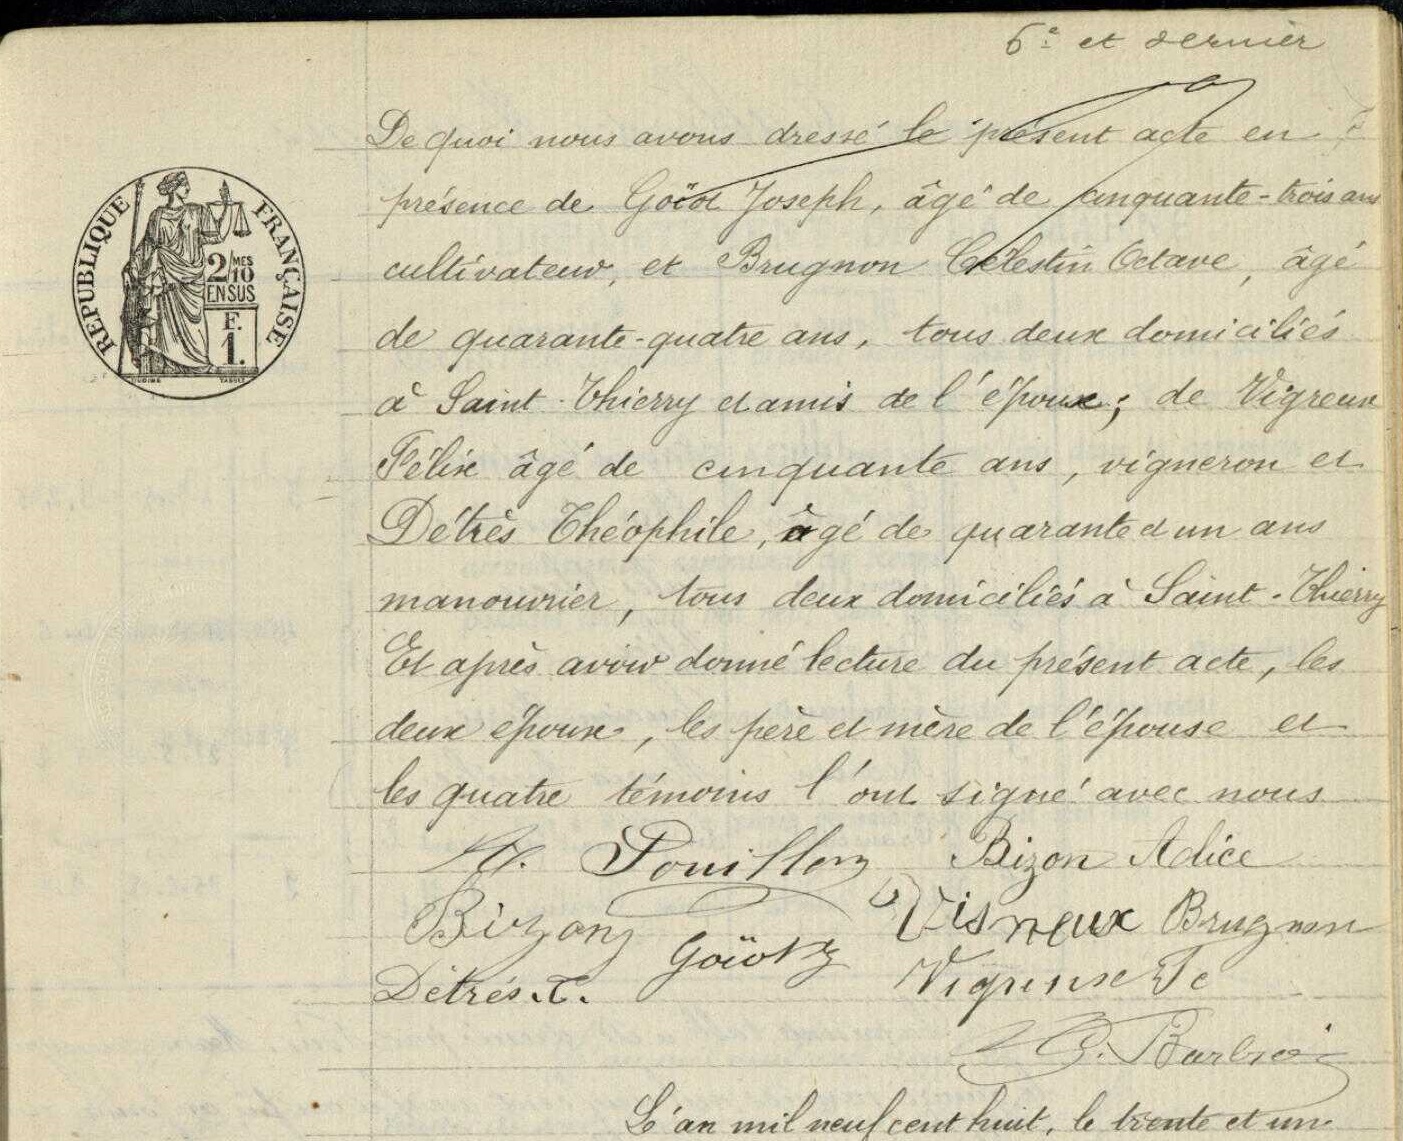 6e et dernier
De quoi nous avons dressé le présent acte en
présence de Goïot Joseph, âgé de cinquante-trois ans
cultivateur, et Brugnon Célestin Octave, âgé
de quarante-quatre ans, tous deux domiciliés
à Saint-Thierry et amis de l'époux; de Vigreux
Félix âgé de cinquante ans, vigneron et
Détrès Théophile, âgé de quarante et un ans
manouvrier, tous deux domiciliés à Saint-Thierry
Et après avoir donné lecture du présent acte, les
deux époux, les père et mère de l'épouse et
les quatre témoins l'ont signé avec nous
RÉPUBLIQUE FRANÇAISE
2/10 MES
EN SUS
F.
1.
OUDINÉ TASSET
Pouillon Bizon Adice
Bizon Goïot Visneux Brugnon
Détrés. T. Vigreuse Fe
Barbé
L'an mil neuf cent huit, le trente et un